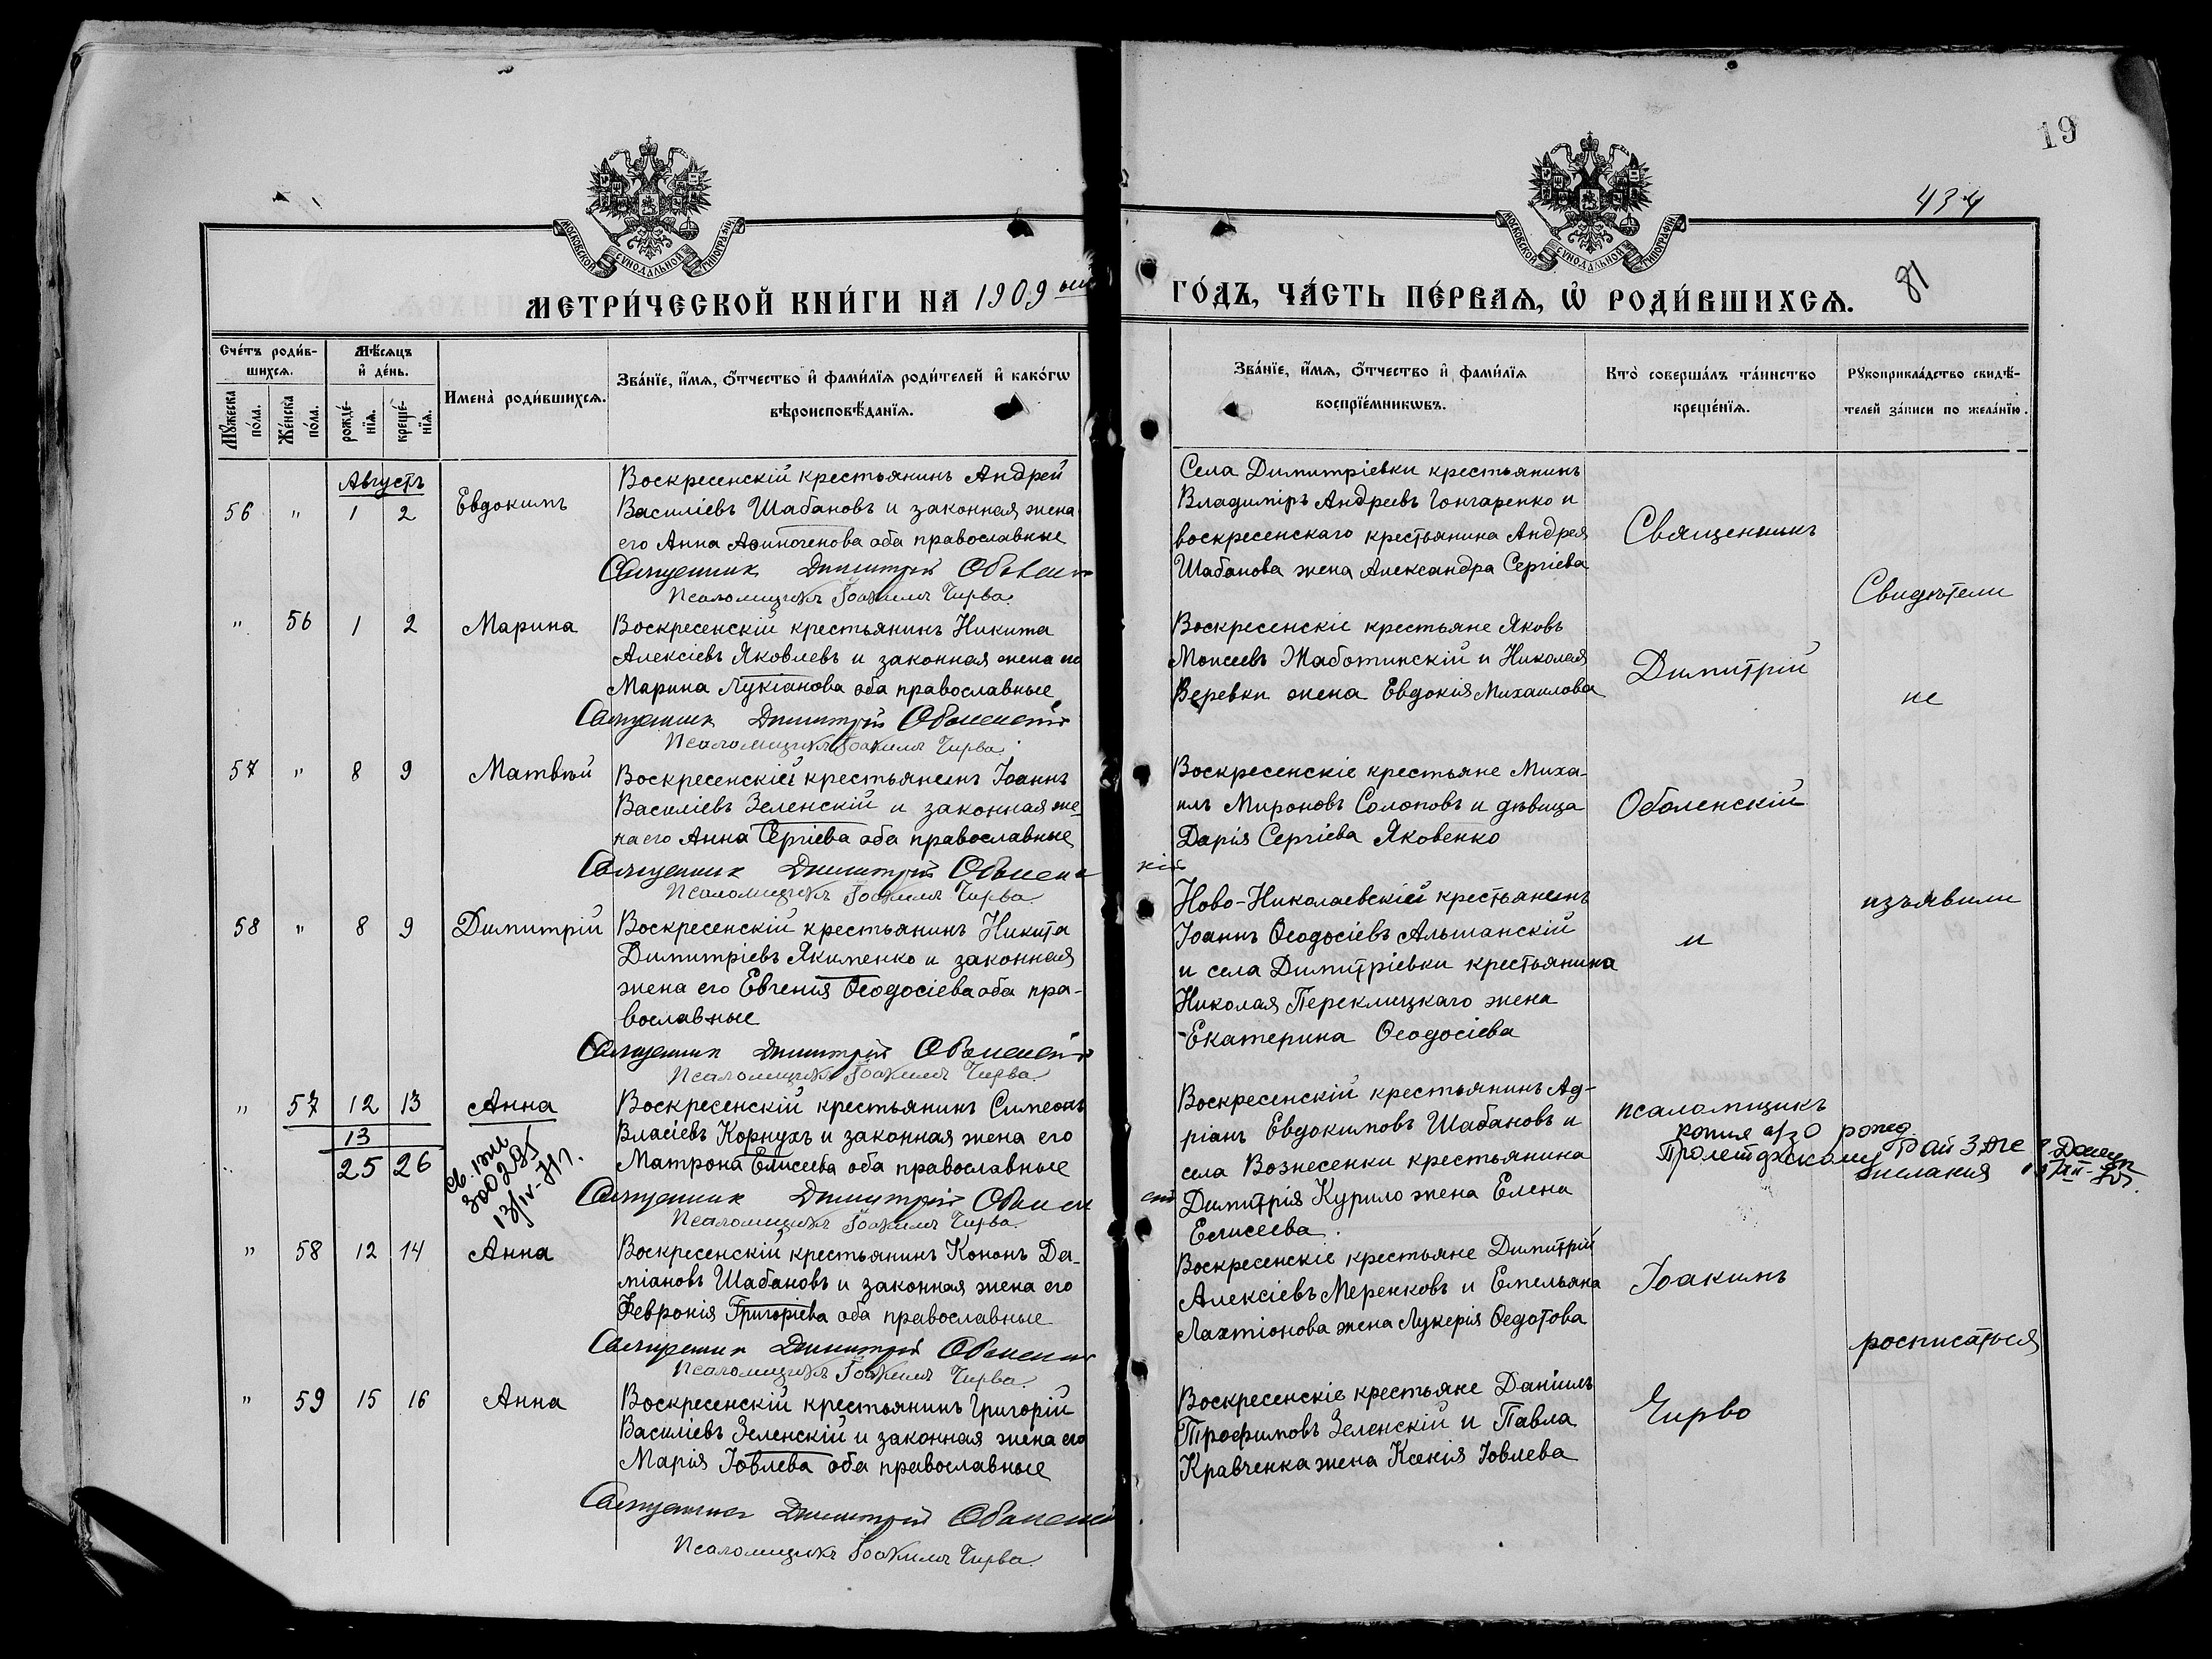 19
434
81
МОСКОВСКОЙ СѴНОДАЛЬНОЙ ТИПОГРАФІИ
МОСКОВСКОЙ СѴНОДАЛЬНОЙ ТИПОГРАФІИ
МЕТРИ́ЧЕСКОЙ КНИ́ГИ НА 1909 ый
ГО́ДЪ, ЧА́СТЬ ПЕ́РВАѦ, Ѡ҆ РОДИ́ВШИХСѦ.
Сче́тъ роди́в-
шихсѧ.
Мѣ́сѧцъ
и҆ де́нь.
Мꙋ́жеска по́ла.
Же́нска по́ла.
рожде́-
нїѧ.
креще́-
нїѧ.
Имена̀ роди́вшихсѧ.
Зва́нїе, и҆́мѧ, ѻ҆́тчество и҆ фами́лїѧ роди́телей и҆ како́гѡ
вѣроисповѣ́данїѧ.
Зва́нїе, и҆́мѧ, ѻ҆́тчество и҆ фами́лїѧ
воспрїе́мникѡвъ.
Кто̀ соверша́лъ та́инство
креще́нїѧ.
Рꙋкоприкла́дство свидѣ́-
телей за́писи по жела́нїю.
Августъ
56 " 1 2 Евдокимъ
Воскресенскій крестьянинъ Андрей
Василіевъ Шабановъ и законная жена
его Анна Аѳиногенова оба православные
Священник Димитрій Оболен
Псаломщикъ Іоакимъ Чирва.
Села Димитріевки крестьянинъ
Владиміръ Андреевъ Гончаренко и
воскресенскаго крестьянина Андрея
Шабанова жена Александра Сергіева
" 56 1 2 Марина
Воскресенскій крестьянинъ Никита
Алексіевъ Яковлевъ и законная жена его
Марина Лукіанова оба православные
Священник Димитрій Оболенскій
Псаломщикъ Іоакимъ Чирва.
Воскресенскіе крестьяне Яковъ
Моисеевъ Жаботинскій и Николая
Веревки жена Евдокія Михаилова
57 " 8 9 Матвѣй
Воскресенскій крестьянинъ Іоаннъ
Василіевъ Зеленскій и законная же-
на его Анна Сергіева оба православные
Священник Димитрій Оболенс
кій
Псаломщикъ Іоакимъ Чирва.
Воскресенскіе крестьяне Миха-
илъ Мироновъ Солоповъ и дѣвица
Дарія Сергіева Яковенко
58 " 8 9 Димитрій
Воскресенскій крестьянинъ Никита
Димитріевъ Якименко и законная
жена его Евгенія Ѳеодосіева оба пра-
вославные
Священник Димитрій Оболенскій
Псаломщикъ Іоакимъ Чирва.
Ново-Николаевскій крестьянинъ
Іоаннъ Ѳеодосіевъ Альшанскій
и села Димитріевки крестьянина
Николая Переклицкаго жена
Екатерина Ѳеодосіева
" 57 12 13 Анна
13
25 26
Воскресенскій крестьянинъ Симеонъ
Власіевъ Корнухъ и законная жена его
Матрона Елисеева оба православные
Священник Димитрій Оболен
скій
Псаломщикъ Іоакимъ Чирва.
Воскресенскій крестьянинъ Ад-
ріанъ Евдокимовъ Шабановъ и
села Вознесенки крестьянина
Димитрія Курило жена Елена
Елисеева.
" 58 12 14 Анна
Воскресенскій крестьянинъ Кононъ Да-
міановъ Шабановъ и законная жена его
Февронія Григоріева оба православные
Священник Димитрій Оболенск
Псаломщикъ Іоакимъ Чирва.
Воскресенскіе крестьяне Димитрій
Алексіевъ Меренковъ и Емельяна
Лахтіонова жена Лукерія Ѳедотова
" 59 15 16 Анна
Воскресенскій крестьянинъ Григорій
Василіевъ Зеленскій и законная жена его
Марія Іовлева оба православные
Священник Димитрій Оболенскій
Псаломщикъ Іоакимъ Чирва.
Воскресенскіе крестьяне Даніилъ
Трофимовъ Зеленскій и Павла
Кравченка жена Ксенія Іовлева
Священникъ
Димитрій
Оболенскій
и
псаломщикъ
Іоакимъ
Чирво
Свидѣтели
не
изъявили
желанія
росписаться